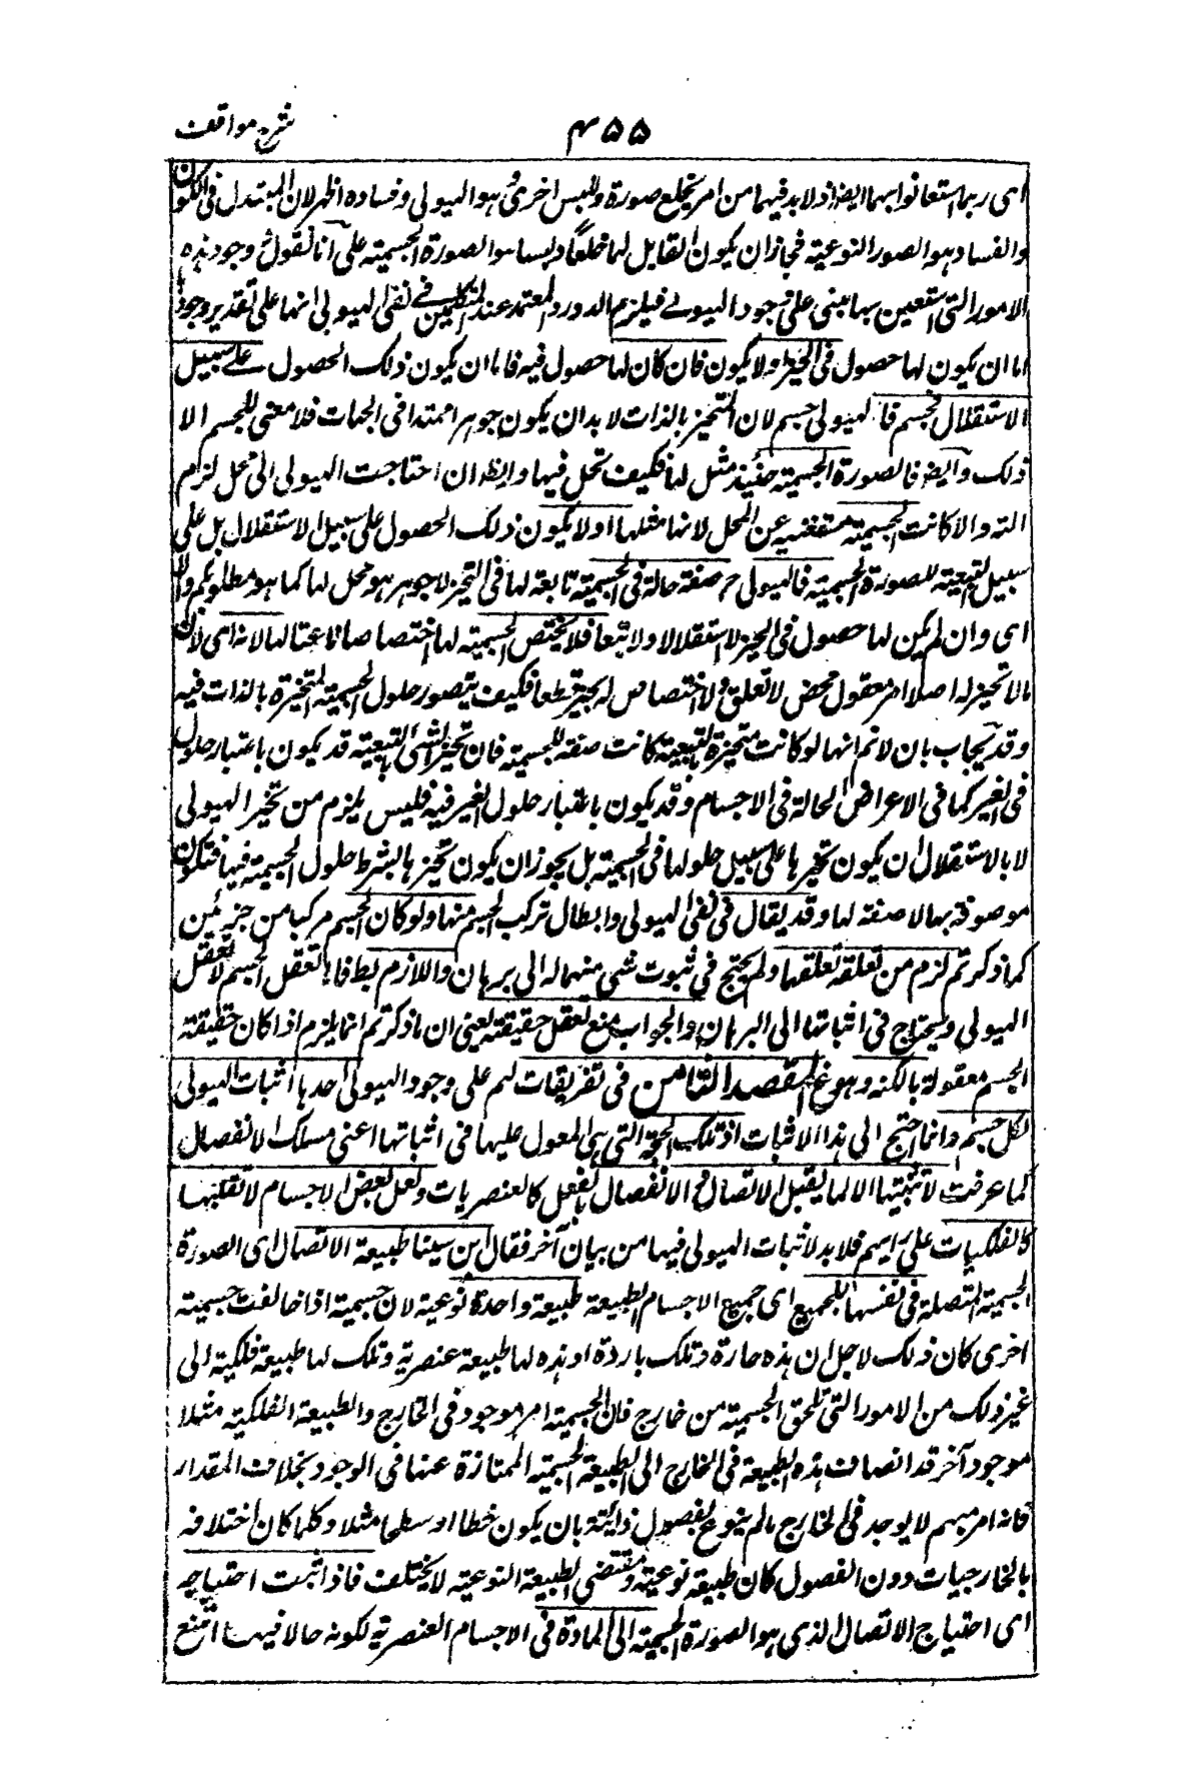 ۴۵۵
شرح مواقف
اى ربما استعانوا بهما ايضا اذ لابد فيهما من امر يخلع صورة ويلبس اخرى وهو الهيولى وفساده اظهر لان المتبدل فى الكون
والفساد هو الصور النوعية فجاز ان يكون القابل لها خلعا ولبسا هو الصورة الجسمية على انا نقول وجود هذه
الامور التى استعين بها مبنى على وجود الهيولى فيلزم الدور والمعتمد عند المتكلمين فى نفى الهيولى انها على تقدير وجودها
اما ان يكون لها حصول فى الحيز اولا يكون فان كان لها حصول فيه فاما ان يكون ذلك الحصول على سبيل
الاستقلال فجسم فالهيولى جسم لان المتحيز بالذات لابد ان يكون جوهرا ممتدا فى الجهات فلا معنى للجسم الا
ذلك وايضا فالصورة الجسمية حينئذ مثل لها فكيف تحل فيها وايضا ان احتاجت الهيولى الى محل لزم
التسـ والا كانت الجسمية مستغنية عن المحل لانها مثلها اولا يكون ذلك الحصول على سبيل الاستقلال بل على
سبيل التبعية للصورة الجسمية فالهيولى ح صفة حالة فى الجسمية تابعة لها فى التحيز لا جوهر هو محل لها كما هو مطلوبكم والا
اى وان لم يكن لها حصول فى الحيز لا استقلالا ولا تبعا فلا يختص الجسمية لها اختصاصا ناعتا لها لانه اى لان
مالا تحيز له اصلا امر معقول محض لا تعلق ولا اختصاص له بحيز قطعا فكيف يتصور حلول الجسمية المتحيزة بالذات فيه
وقد يجاب بان لانم انها لو كانت متحيزة بالتبعية كانت صفة للجسمية فان تحيز الشئ بالتبعية قد يكون باعتبار حلوله
فى الغير كما فى الاعراض الحالة فى الاجسام وقد يكون باعتبار حلول الغير فيه فليس يلزم من تحيز الهيولى
لا بالاستقلال ان يكون تحيزها على سبيل حلولها فى الجسمية بل يجوز ان يكون تحيزها بشرط حلول الجسمية فيها فتكون
موصوفة بها لا صفة لها وقد يقال فى نفى الهيولى وابطال تركب الجسم منها ولو كان الجسم مركبا من جزئين
كما ذكرتم لزم من تعلقه تعلقها ولم يحتج فى ثبوت شئ منهما له الى برهان واللازم بط فانا نتعقل الجسم ولا نتعقل
الهيولى ويحتاج فى اثباتها الى البرهان والجواب منع تعقل حقيقته يعنى ان ما ذكرتم انما يلزم اذا كان حقيقة
الجسم معقولة بالكنه وهو مم المقصد الثامن فى تفريقات لهم على وجود الهيولى احدها اثبات الهيولى
لكل جسم وانما احتج الى هذا الاثبات اذ تلك الحجة التى هى المعول عليها فى اثباتها اعنى مسلك الانفصال
كما عرفت لا تثبتها الا لما يقبل الاتصال و الانفصال بالفعل كالعنصريات ولعل بعض الاجسام لا تقبلهما
كالفلكيات على رايهم فلابد لاثبات الهيولى فيها من بيان آخر فقال ابن سينا طبيعة الاتصال اى الصورة
الجسمية المتصلة فى نفسها للجميع اى جميع الاجسام الطبيعة طبيعة واحدة نوعية لان جسمية اذا خالفت جسمية
اخرى كان ذلك لاجل ان هذه حارة وتلك باردة او هذه لها طبيعة عنصرية وتلك لها طبيعة فلكية الى
غير ذلك من الامور التى تلحق الجسمية من خارج فان الجسمية امر موجود فى الخارج والطبيعة الفلكية مثلا
موجود آخر قد انضافت هذه الطبيعة فى الخارج الى الطبيعة الجسمية الممتازة عنها فى الوجود بخلاف المقدار
فانه امر مبهم لا يوجد فى الخارج مالم يتنوع بفصول ذاتية وبان يكون خطا او سطحا مثلا وكلما كان اختلافه
بالخارجيات دون الفصول كان طبيعة نوعية ومقتضى الطبيعة النوعية لا يختلف فاذا ثبت احتياجه
اى احتياج الاتصال الذى هو الصورة الجسمية الى المادة فى الاجسام العنصرية لكونه حالا فيها امتنع